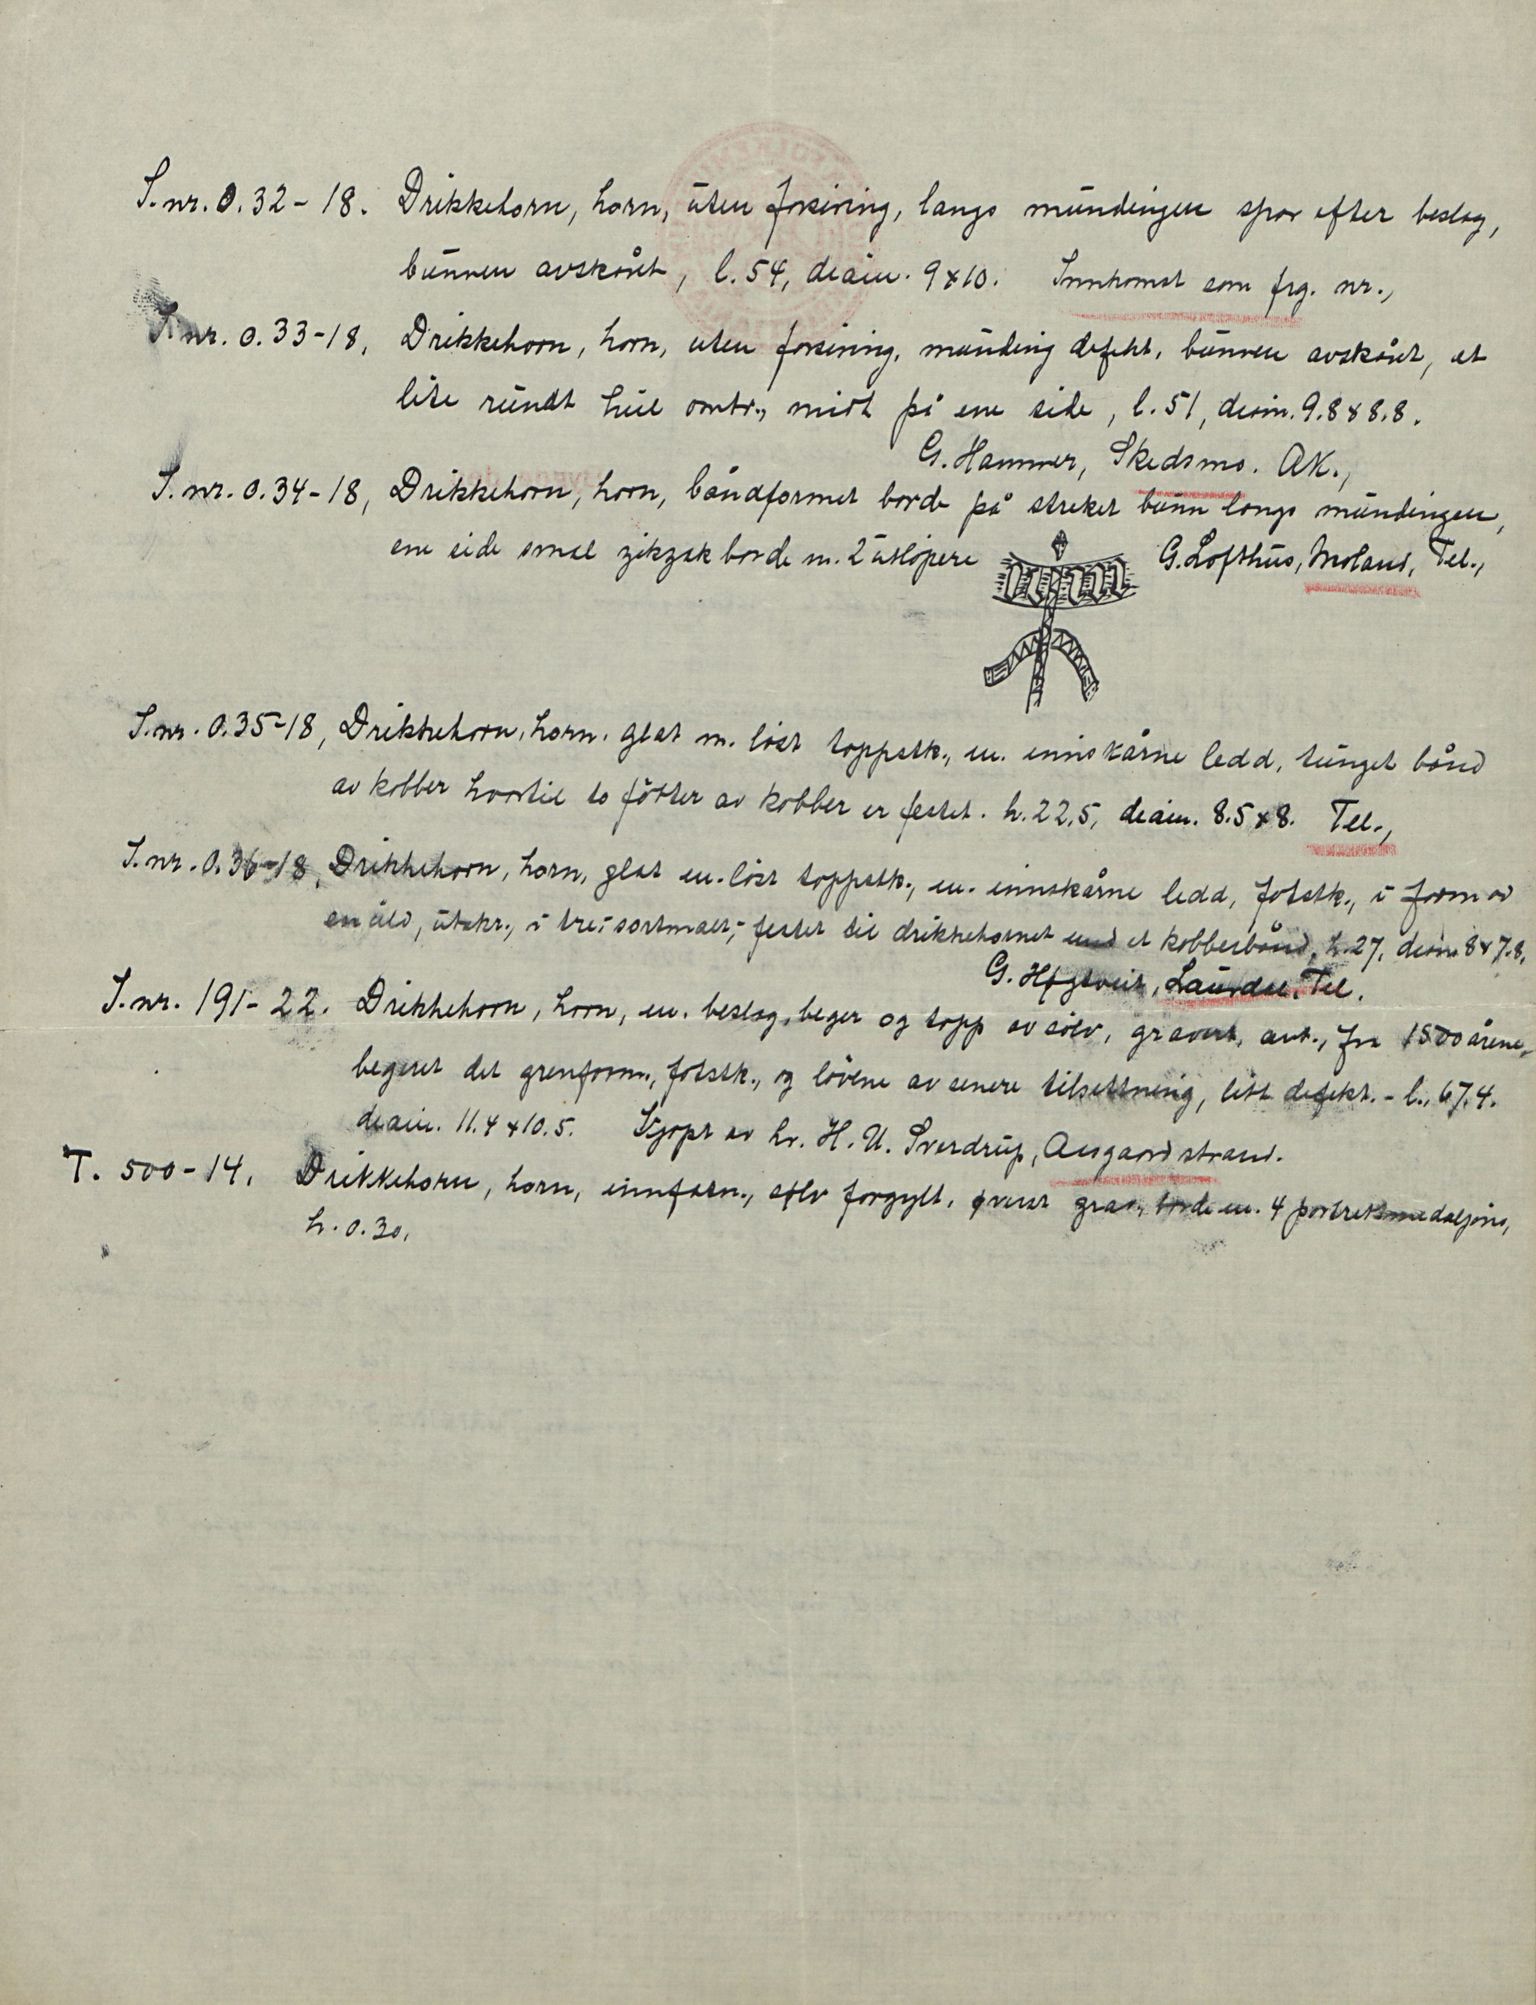 S.nr. O.32-18. Drikkehorn, horn, uten forsiring, langs mundingen spor efter beslag,
bunnen avskåret, l. 54, diam. 9 x 10. Innkomst som frg. nr.,
S.nr. O.33-18, Drikkehorn, horn, uten forsiring, munding defekt, bunnen avskåret, et
lite rundt hul omtr., midt på ene side, l. 51, diam. 9.8 x 8.8.
G. Hammer, Skedsmo. AK.,
S.nr. O.34-18, Drikkehorn, horn, båndformet borde på streket bunn langs mundingen,
ene side smal zikzakborde m. 2 utløpere G. Lofthus, Moland, Tel.,
S.nr. O.35-18, Drikkehorn, horn, glat m. løst toppstk., m. innskårne ledd, tunget bånd
av kobber hvortil to føtter av kobber er festet. h. 22.5, diam. 8.5 x 8. Tel.,
S.nr. O.36-18, Drikkehorn, horn, glat m. løst toppstk., m. innskårne ledd, fotstk., i form av
utskr., i tre, sortmalt, festet til drikkehornet med et kobberbånd, h. 27, diam. 8 x 7.8,
G. Høgtveit, Laurdal, Tel.
S.nr. 191-22. Drikkehorn, horn, m. beslag, beger og topp av sølv, gravert, ant., fra 1500 årene,
begeret det grenform., fotstk., og løvene av senere tilsettning, litt defekt. - l., 67.4.
diam. 11.4 x 10.5. Kjøpt av hr. H. U. Sverdrup, Aasgaardstrand.
T. 500-14. Drikkehorn, horn, innfatn., sølv forgylt, øverst grav. borde m. 4 portrettmedaljons,
h. 0.30.